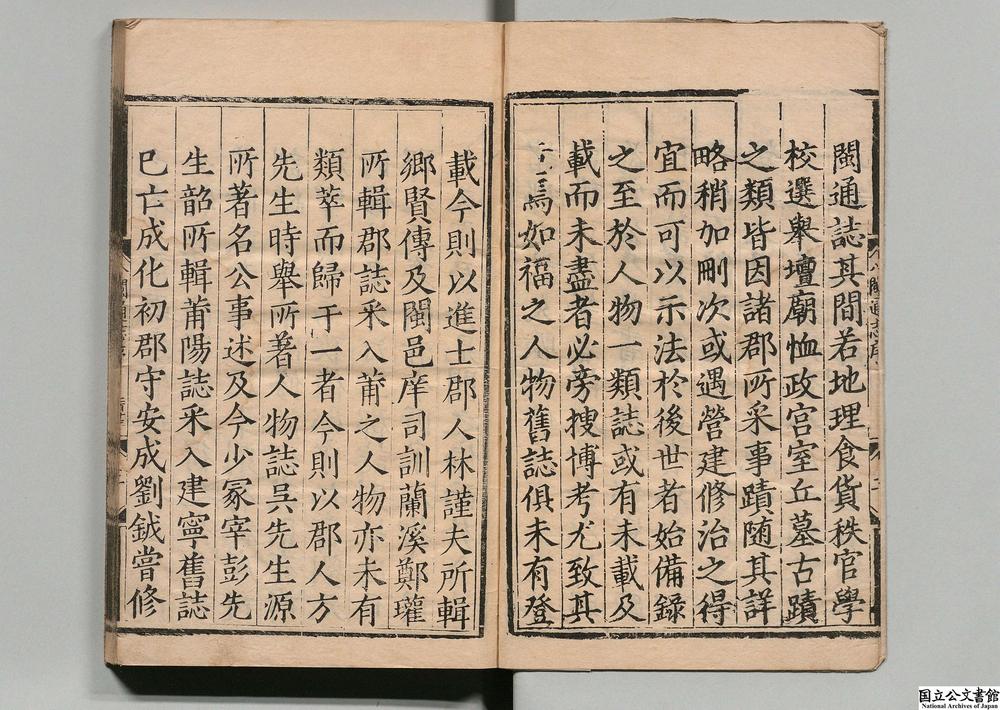 閩通誌其間若地理食貨秩官學
校選舉壇廟恤政宫室丘墓古蹟
之類皆因諸郡所采事蹟随其詳
略稍加刪次或遇營建修治之得
宜而可以示法於後世者始備録
之至於人物一類誌或有未載及
載而未盡者必旁搜博考尤致其
焉如福之人物舊誌俱未有登
載今則以進士郡人林謹夫所輯
鄉賢傳及閩邑庠司訓蘭溪鄭瓘
所輯郡誌采入莆之人物亦未有
類萃而歸于一者今則以郡人方
先生時舉所著人物誌吳先生源
所著名公事述及今少冢宰彭先
生韶所輯莆陽誌采入建寧舊誌
已亡成化初郡守安成劉鉞嘗修
国立公文書館
National Archives of Japan